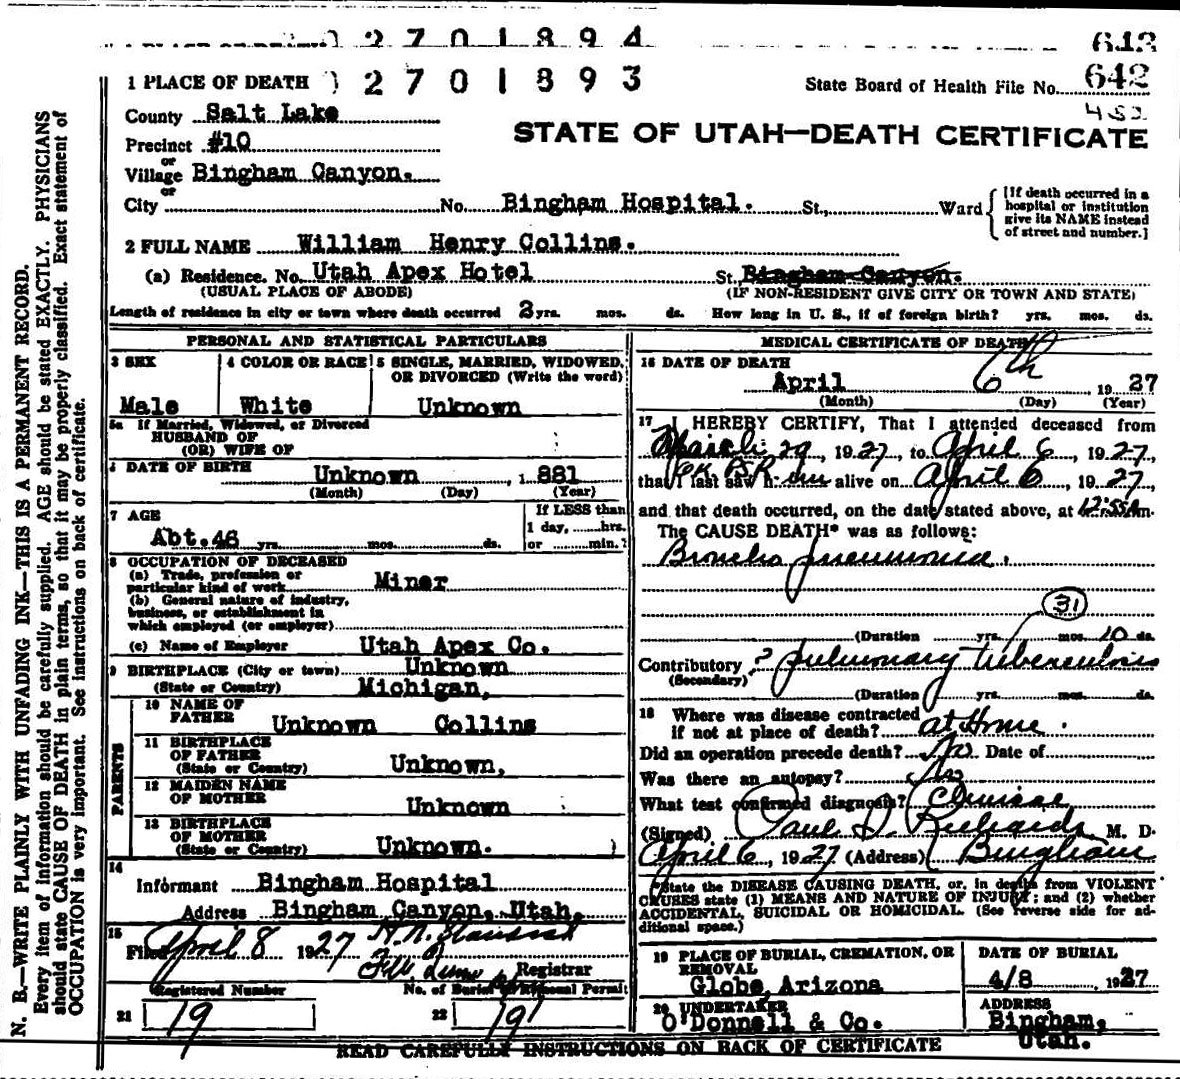 0 2 7 0 1 8 9 4
643
1 PLACE OF DEATH 0 2 7 0 1 8 9 3
State Board of Health File No. 642
452
STATE OF UTAH—DEATH CERTIFICATE
County Salt Lake
Precinct #10
or
Village Bingham Canyon.
or
City No. Bingham Hospital. St., Ward
[If death occurred in a
hospital or institution
give its NAME instead
of street and number.]
2 FULL NAME William Henry Collins.
(a) Residence. No. Utah Apex Hotel St. Bingham Canyon.
(USUAL PLACE OF ABODE) (IF NON-RESIDENT GIVE CITY OR TOWN AND STATE)
Length of residence in city or town where death occurred 2 yrs. mos. ds. How long in U. S., if of foreign birth? yrs. mos. ds.
PERSONAL AND STATISTICAL PARTICULARS
3 SEX
Male
4 COLOR OR RACE
White
5 SINGLE, MARRIED, WIDOWED,
OR DIVORCED (Write the word)
Unknown
5a If Married, Widowed, or Divorced
HUSBAND OF
(OR) WIFE OF
6 DATE OF BIRTH Unknown , 1 881
(Month) (Day) (Year)
7 AGE
Abt. 46 yrs. mos. ds.
If LESS than
1 day, hrs.
or min.?
8 OCCUPATION OF DECEASED
(a) Trade, profession or
particular kind of work Miner
(b) General nature of industry,
business, or establishment in
which employed (or employer)
(c) Name of Employer Utah Apex Co.
9 BIRTHPLACE (City or town) Unknown
(State or Country) Michigan,
PARENTS
10 NAME OF
FATHER Unknown Collins
11 BIRTHPLACE
OF FATHER
(State or Country) Unknown,
12 MAIDEN NAME
OF MOTHER Unknown
13 BIRTHPLACE
OF MOTHER
(State or Country) Unknown.
14
Informant Bingham Hospital
Address Bingham Canyon, Utah,
15
Filed April 8 1927
Registrar
Registered Number No. of Burial or Removal Permit
21 19 22 19
MEDICAL CERTIFICATE OF DEATH
16 DATE OF DEATH
April 6th 19 27
(Month) (Day) (Year)
17 I HEREBY CERTIFY, That I attended deceased from
March 29, 1927, to April 6, 1927,
that I last saw h im alive on April 6, 1927,
and that death occurred, on the date stated above, at 12:55 A m.
The CAUSE DEATH* was as follows:
Broncho pneumonia.
31
(Duration yrs. mos. 10 ds.
Contributory ? pulmonary tuberculosis
(Secondary)
(Duration yrs. mos. ds.
18 Where was disease contracted
if not at place of death? at Home.
Did an operation precede death? No Date of
Was there an autopsy? No
What test confirmed diagnosis? Clinical
(Signed) Paul S. Richards, M. D.
April 6, 1927 (Address) Bingham
*State the DISEASE CAUSING DEATH, or, in death from VIOLENT
CAUSES state (1) MEANS AND NATURE OF INJURY; and (2) whether
ACCIDENTAL, SUICIDAL OR HOMICIDAL. (See reverse side for ad-
ditional space.)
19 PLACE OF BURIAL, CREMATION, OR
REMOVAL
Globe, Arizona
DATE OF BURIAL
4/8 1927
20 UNDERTAKER
O'Donnell & Co.
ADDRESS
Bingham,
Utah.
READ CAREFULLY INSTRUCTIONS ON BACK OF CERTIFICATE
N. B.—WRITE PLAINLY WITH UNFADING INK—THIS IS A PERMANENT RECORD.
Every item of information should be carefully supplied. AGE should be stated EXACTLY. PHYSICIANS
should state CAUSE OF DEATH in plain terms, so that it may be properly classified. Exact statement of
OCCUPATION is very important. See instructions on back of certificate.